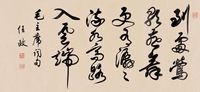 到處鶯
歌燕舞
更有潺潺
流水高路
入雲端
毛主席詞句
任政